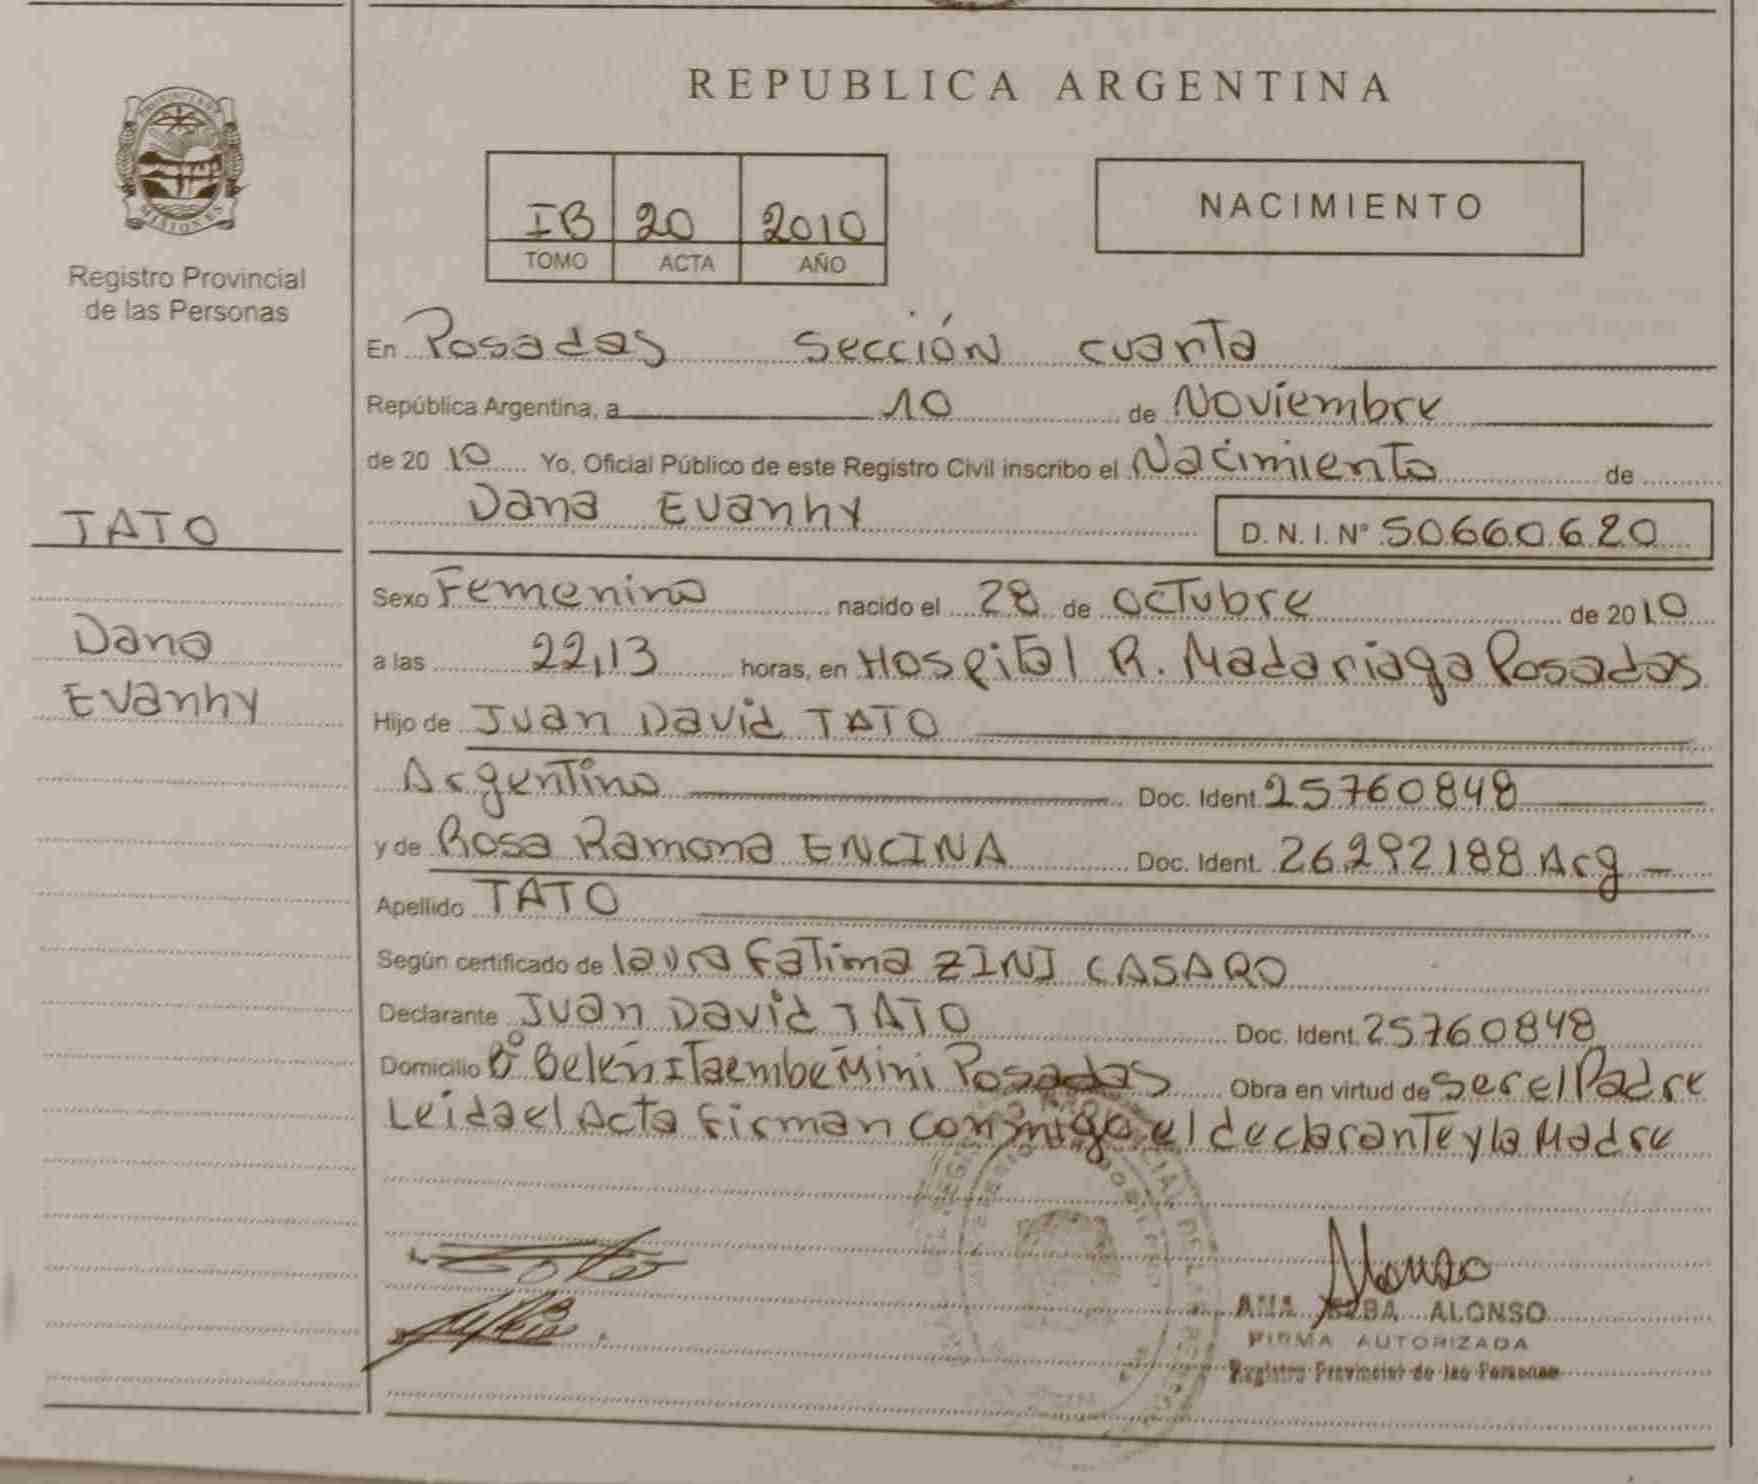 REPUBLICA ARGENTINA
MISIONES
Registro Provincial
de las Personas
IB 20 2010
TOMO ACTA AÑO
NACIMIENTO
En Posadas sección cuarta
República Argentina, a 10 de Noviembre
de 2010 Yo, Oficial Público de este Registro Civil inscribo el Nacimiento de
Dana Evanhy D.N.I. Nº 50660620
TATO
Dana
Evanhy
Sexo Femenino nacido el 28 de octubre de 2010
a las 22,13 horas, en Hospital R. Madariaga Posadas
Hijo de Juan David TATO
Argentino Doc. Ident. 25760848
y de Rosa Ramona ENCINA Doc. Ident. 26.292.188 Arg
Apellido TATO
Según certificado de laura Fatima ZINI CASARO
Declarante Juan David TATO Doc. Ident. 25760848
Domicilio Bº Belén Itaembe Mini Posadas Obra en virtud de ser el Padre
Leida el Acta firman conmigo el declarante y la Madre
Alonso
ANA ALONSO
FIRMA AUTORIZADA
Registro Provincial de las Personas